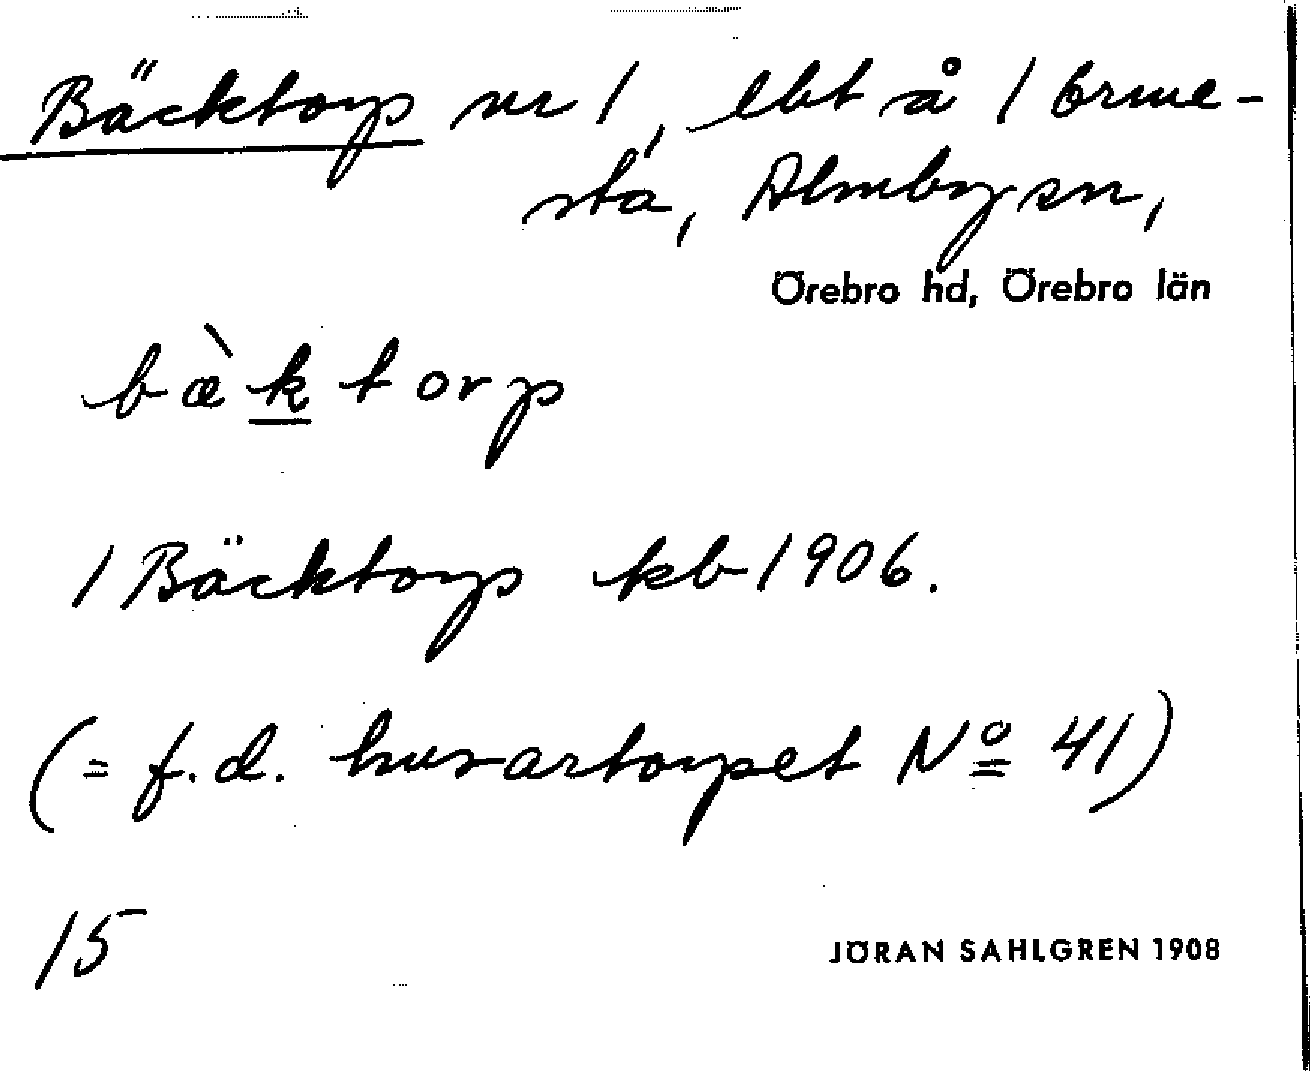 Bäcktorp nr 1, lht å 1 Orme-
sta, Almby sn,
Örebro hd, Örebro län
bæ̀k torp
1 Bäcktorp kb 1906.
(= f.d. husartorpet Nº 41)
15
JÖRAN SAHLGREN 1908